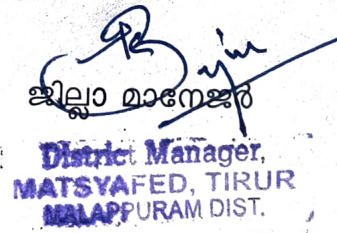 ജില്ലാ മാനേജർ
District Manager,
MATSYAFED, TIRUR
MALAPPURAM DIST.